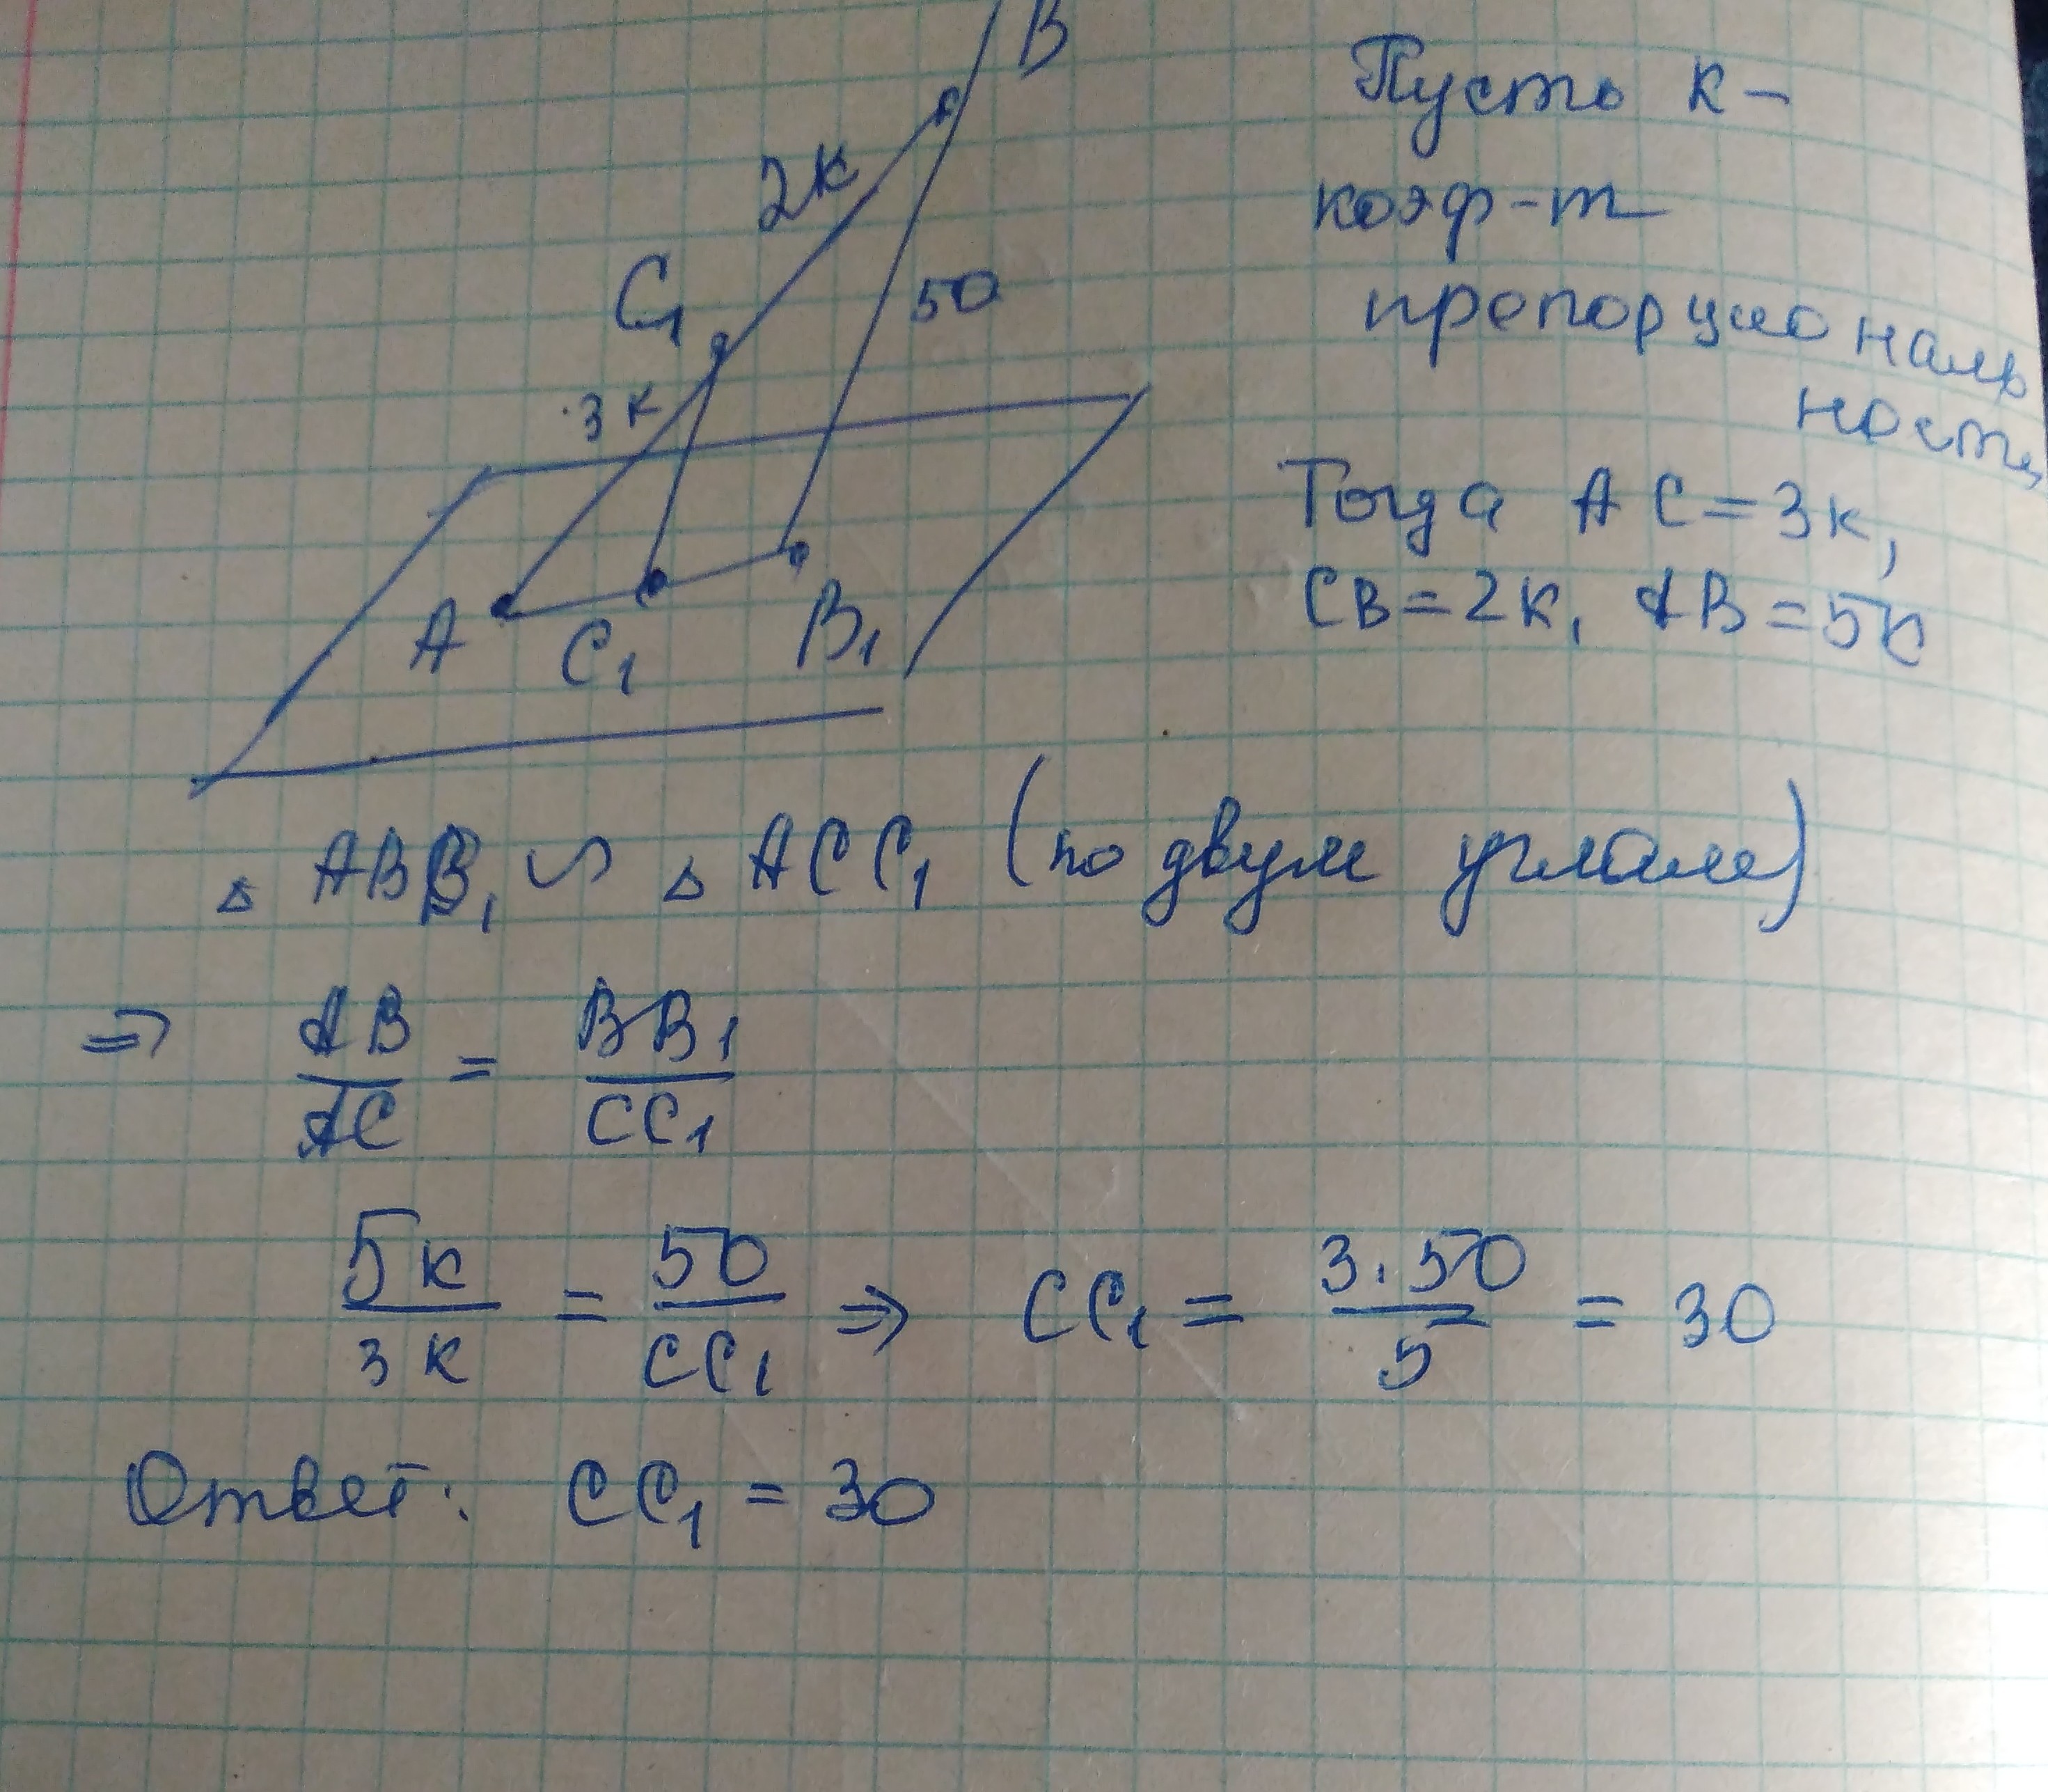 B
2к
C₁
50
3к
A
C₁
B₁
Пусть к -
коэф-т
пропорциональ
ности
Тогда AC = 3к,
CB = 2к, AB = 5к
△ ABB₁ ∽ △ ACC₁ (по двум углам)
⇒ AB/AC = BB₁/CC₁
5к/3к = 50/CC₁ ⇒ CC₁ = 3·50/5 = 30
Ответ: CC₁ = 30